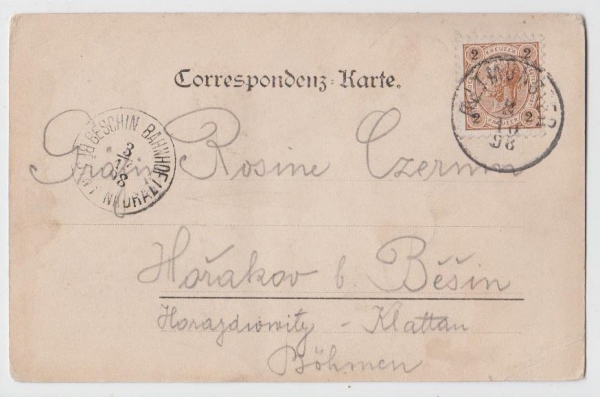 2 KREUZER 2
Correspondenz-Karte.
2 KREUZER 2
98
BESCHIN BAHNHOF
3
98
NÁDRAŽÍ
Gräfin Rosine Czernin
Hořakov b. Běšin
Horazdiowitz - Klattau
Böhmen